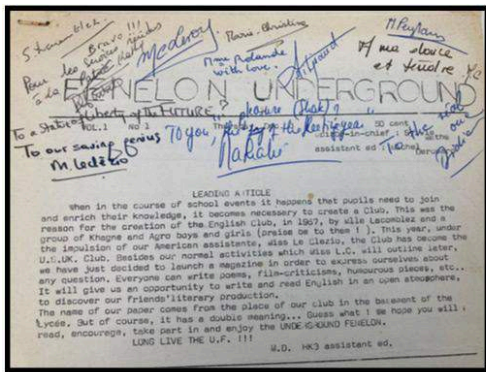 Bravo !!!
Pour les services rendus
à la
Marie-Christine
Mme Rolande
with love.
M. Peytavi
A ma douce
et tendre
FENELON UNDERGROUND
To a Statue of Liberty of the FUTURE?
VOL.1 No 1
50 cent
-in-chief :
assistant ed
To our saving genius
M. Ledézio
To you,
LEADING ARTICLE
When in the course of school events it happens that pupils need to join
and enrich their knowledge, it becomes necessary to create a Club. This was the
reason for the creation of the English Club, in 1967, by Mlle Lacombiez and a
group of Khagne and Agro boys and girls (praise be to them ! ). This year, under
the impulsion of our American assistante, Miss Le Clezio, the Club has become the
U.S.UK. Club. Besides our normal activities which Miss L.C. will outline later,
we have just decided to launch a magazine in order to express ourselves about
any question. Everyone can write poems, film-criticisms, humourous pieces, etc..
It will give us an opportunity to write and read English in an open atmosphere,
to discover our friends'literary production.
The name of our paper comes from the place of our club in the basement of the
Lycée. But of course, it has a double meaning... Guess what ! We hope you will
read, encourage, take part in and enjoy the UNDERGROUND FENELON.
LONG LIVE THE U.F. !!!
W.D. HK3 assistant ed.